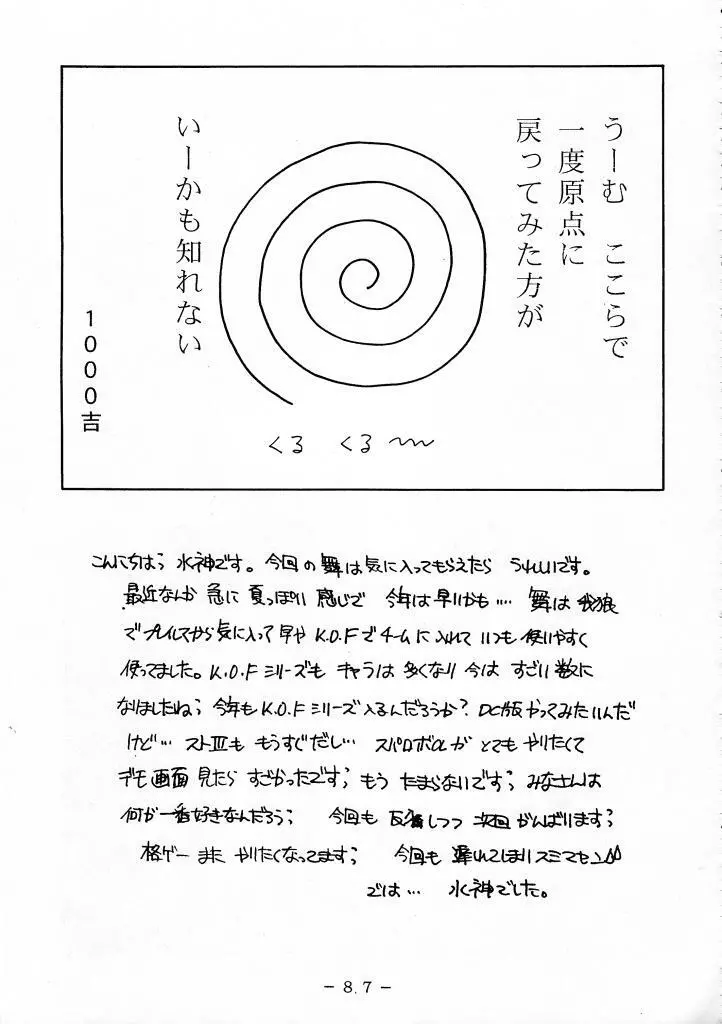 うーむ　ここらで
一度原点に
戻ってみた方が
いーかも知れない
1000吉
くる　くる〜
こんにちは、水神です。今回の舞は気に入ってもらえたら うれしいです。
最近なんか 急に 夏っぽい 感じで 今年は早いかも…. 舞は 餓狼
でプレイしてから気に入って 早や K.O.Fでチームに入れて いつも 使いやすく
使ってました。K.O.Fシリーズも キャラは 多くなり 今は すごい 数に
なりましたね、今年もK.O.Fシリーズ入るんだろうか？ DC版やってみたいんだ
けど… ストⅢも もうすぐだし… スパロボαが とても やりたくて
デモ画面 見たら すごかったです、もう たまらないです、みなさんは
何が一番好きなんだろう、 今回も 反省しつつ 次回 がんばります、
格ゲー また やりたくなってます、 今回も 遅れてしまい スミマセン
では… 水神でした。
- 8.7 -